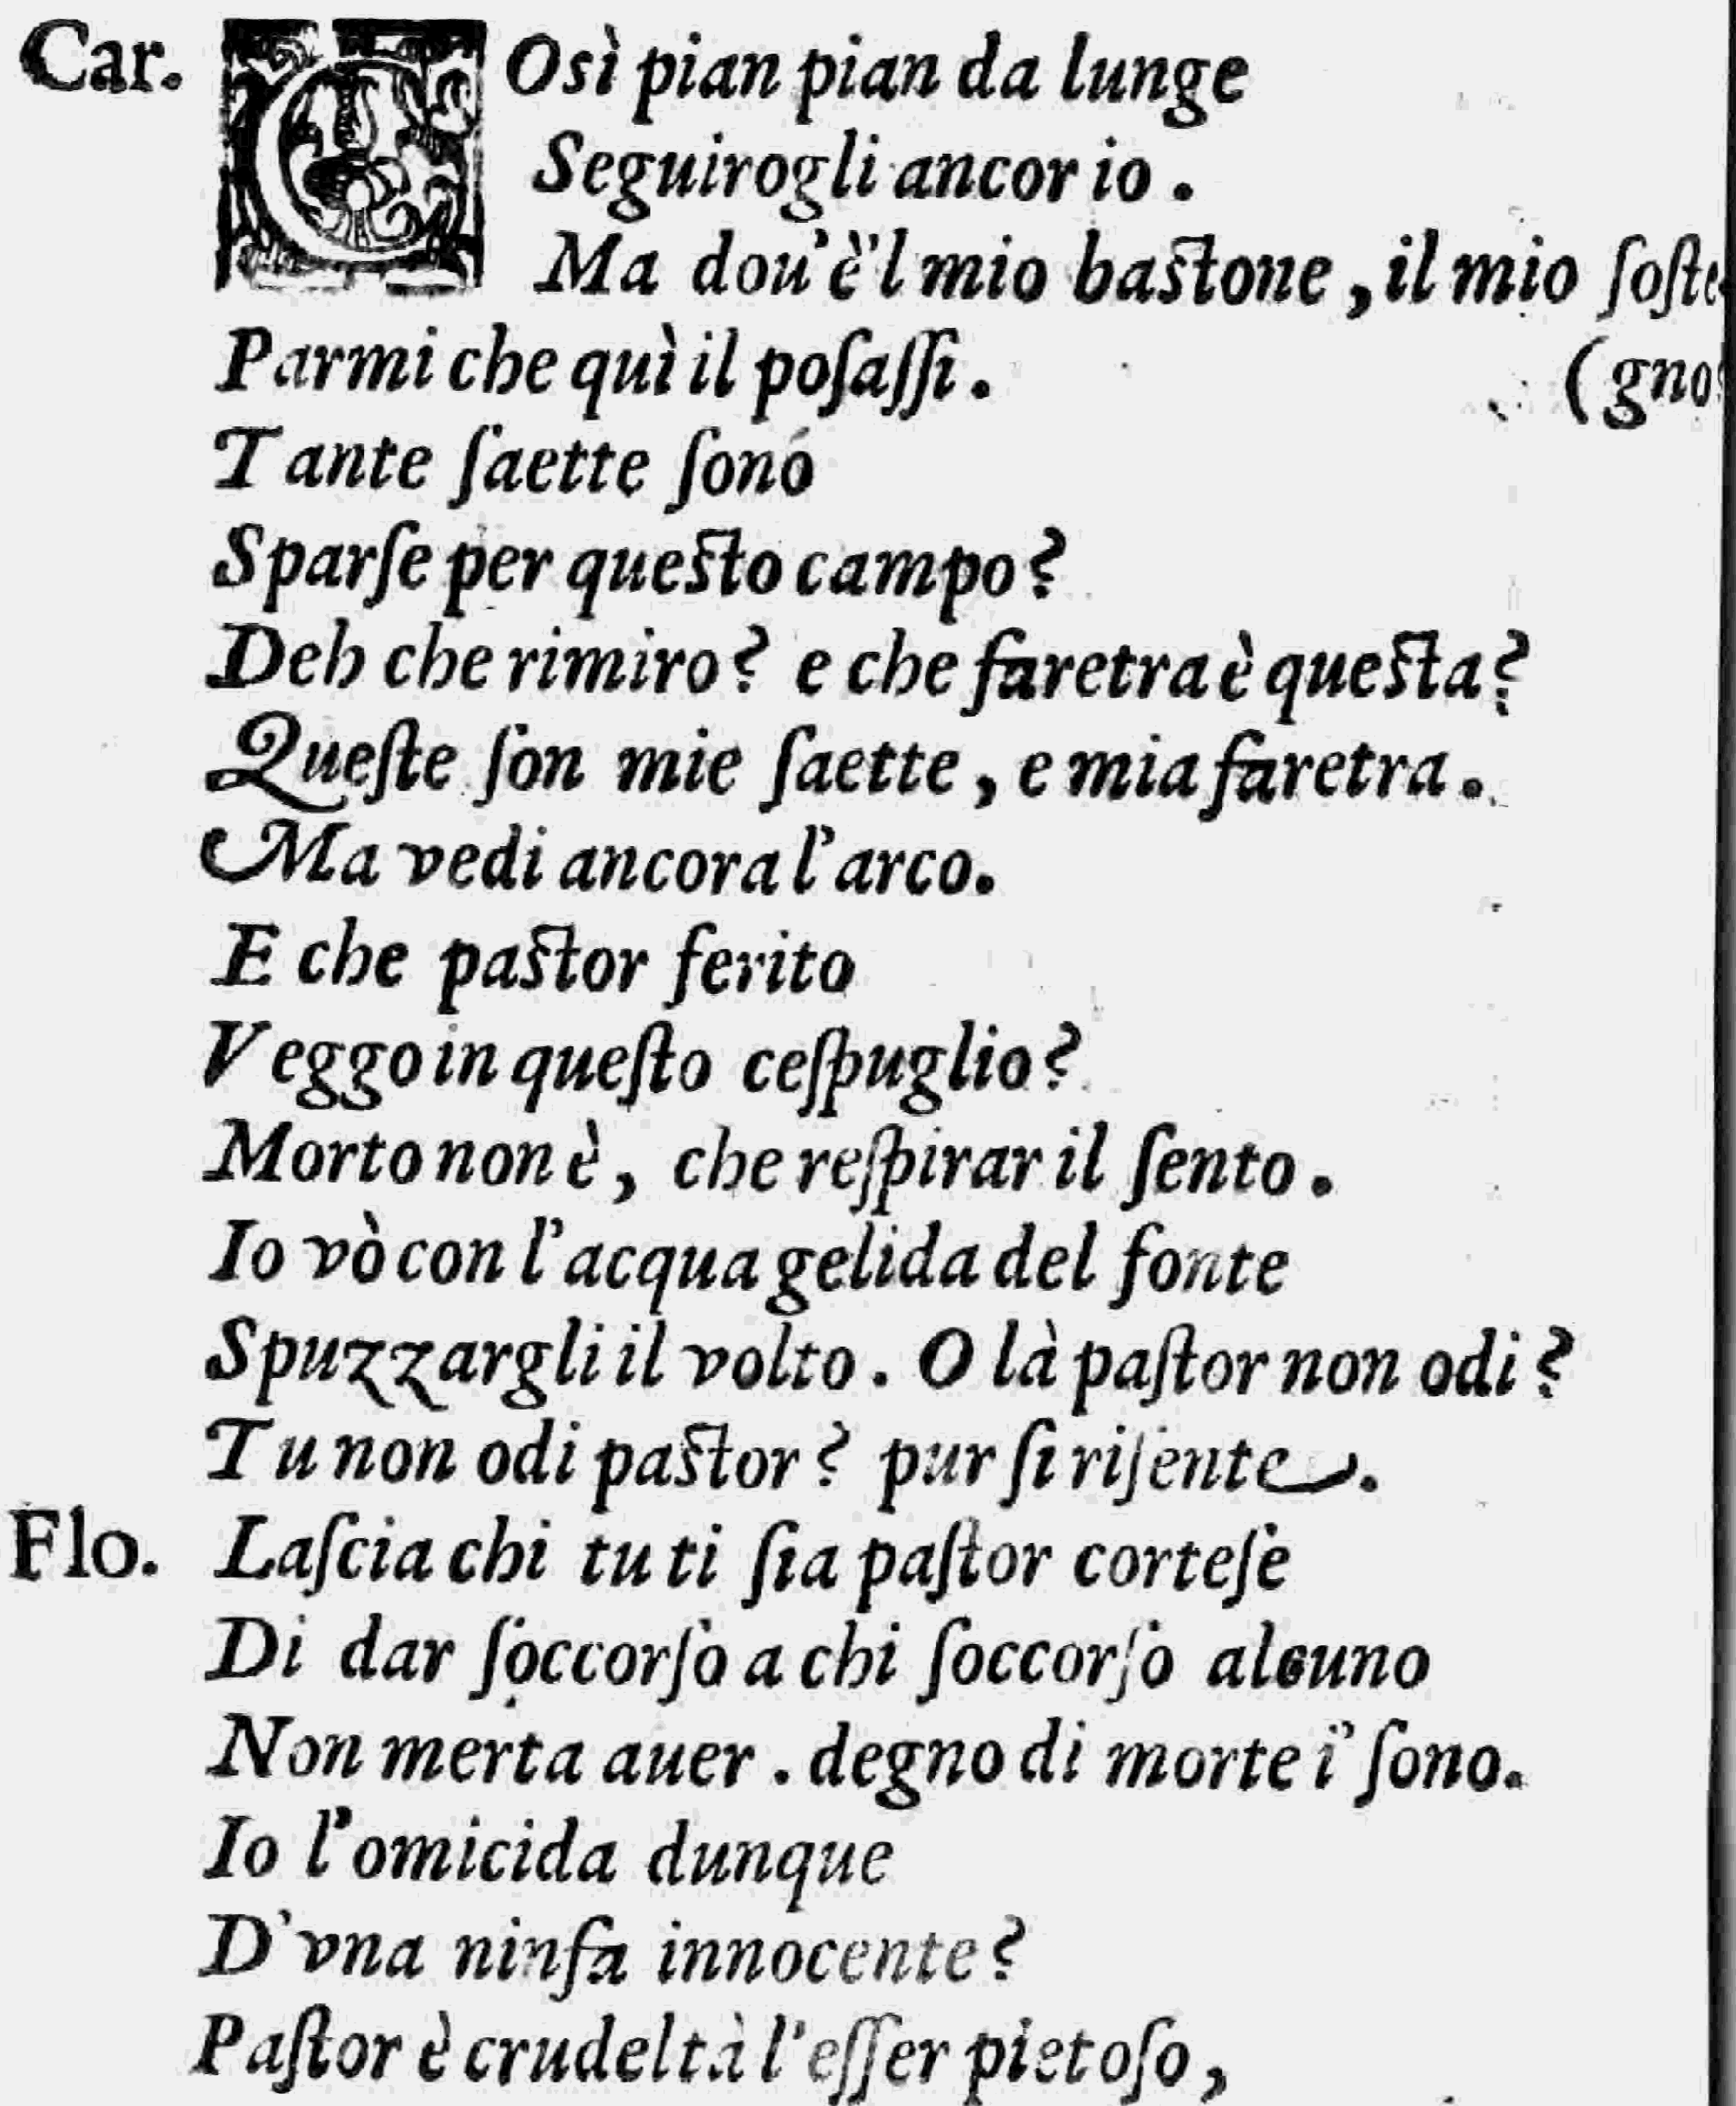 Car. COsì pian pian da lunge
Seguirogli ancor io.
Ma dou'è'l mio bastone, il mio ſoste-
Parmi che quì il poſaſſi. (gno?
Tante ſaette ſono
Sparſe per questo campo?
Deh che rimiro? e che faretra è questa?
Queſte ſon mie ſaette, e mia faretra.
Ma vedi ancora l'arco.
E che pastor ferito
Veggo in queſto ceſpuglio?
Morto non è, che reſpirar il ſento.
Io vò con l'acqua gelida del fonte
Spuzzargli il volto. O là paſtor non odi?
Tu non odi pastor? pur ſi riſente.
Flo. Laſcia chi tu ti ſia paſtor corteſe
Di dar ſoccorſo a chi ſoccorſo alcuno
Non merta auer. degno di morte i' ſono.
Io l'omicida dunque
D'vna ninfa innocente?
Paſtor è crudeltà l'eſſer pietoſo,